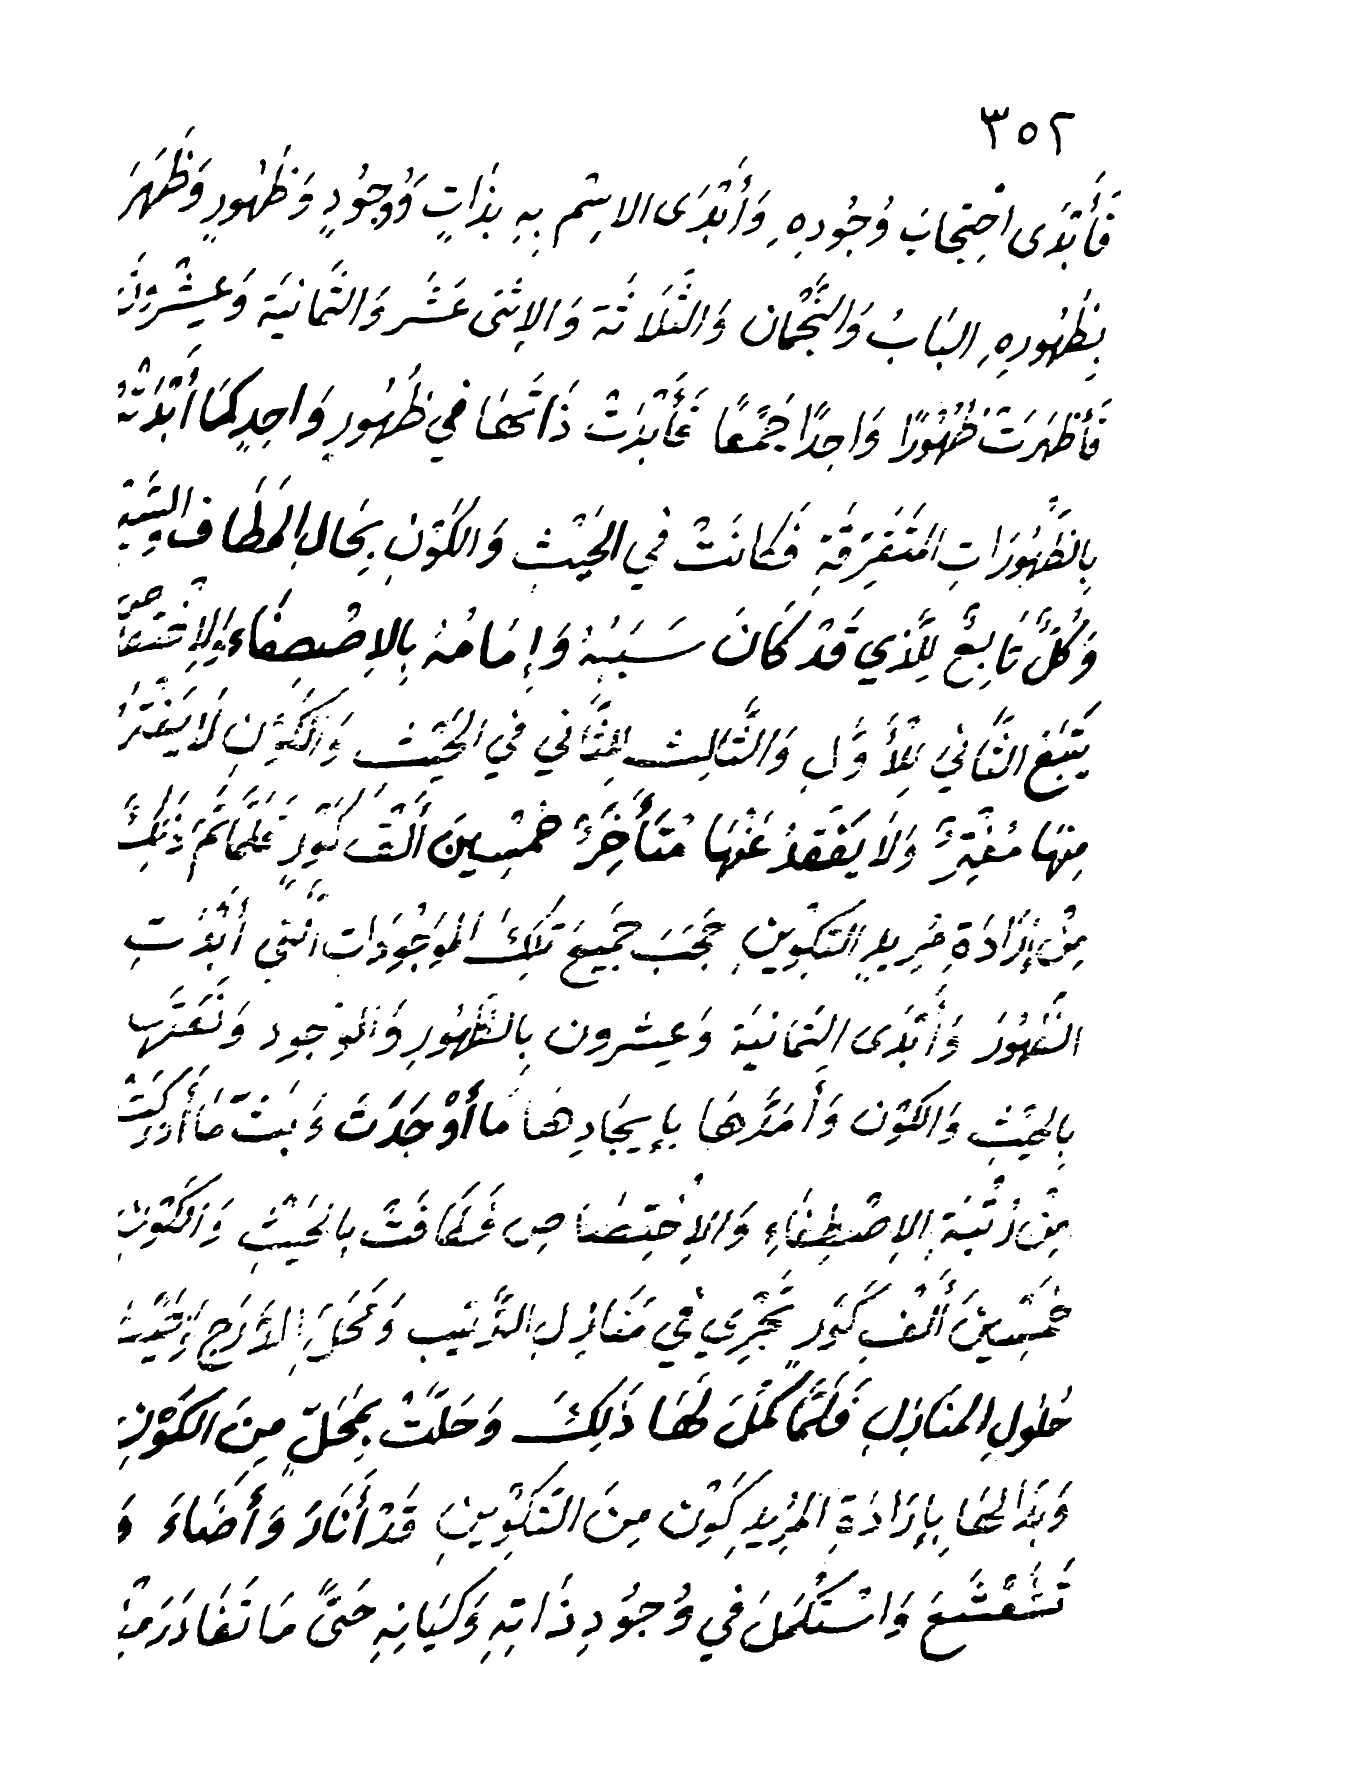 ٣٥٢
فَأَبْدَى احْتِجَابَ وُجُودِهِ وَأَبْدَى الاِسْم بِهِ بِذَاتٍ وَوُجُودٍ وَظُهُورٍ وَظَهَرَ
بِظُهُورِهِ البَابُ وَالنَّجْمَان وَالثَّلَاثَة وَالاِثْنَى عَشَر وَالثَّمَانِيَة وَعِشْرُونَ
فَأَظْهَرَتْ ظُهُورًا وَاحِدًا جَمْعًا فَأَبْدَتْ ذَاتَهَا فِي ظُهُورٍ وَاحِدٍ كَمَا أَبْدَتْهُ
بِالظُّهُورَاتِ المُتَفَرِّقَةِ فَكَانَتْ فِي الحَيْثِ وَالكَوْنِ بِحَالِ المَطَاف
وَكُلٌّ تَابِعٌ لِلَّذِي قَدْ كَانَ سَبَبُهُ وَإِمَامُهُ بِالاِصْطِفَاءِ
يَتْبَعُ الثَّانِي لِلْأَوَّلِ وَالثَّالِث لِلثَّانِي فِي الحَيْثِ وَالكَوْنِ لَا يَفْتَرُ
مِنْهَا مُفْتِرٌ وَلَا يَفْقِدُ عَنْهَا مُتَأَخِّرٌ خَمْسِينَ أَلْفَ كَوْرٍ فَلَمَّا تَمَّ ذَلِكَ
مِنْ إِرَادَةِ مُرِيدِ التَّكْوِينِ حَجَبَ جَمِيعَ تِلْكَ المَوْجُودَات الَّتِي أَبْدَتِ
الظُّهُورَ وَأَبْدَى الثَمَانِيَة وَعِشْرُون بِالظُّهُورِ وَالوُجُود
بِالحَيْثِ وَالكَوْن وَأَمَدَّهَا بِإِيجَادِهَا مَا أَوْجَدَتْ مَا أَدْرَكَتْ
مِنْ رُتْبَةِ الاِصْطِفَاءِ وَالاِخْتِصَاصِ فَطَافَتْ بِالحَيْثِ وَالكَوْنِ
خَمْسِينَ أَلْف كَوْرٍ تَجْرِي فِي مَنَازِلِ التَّرْتِيبِ وَمَحَلِّ الدَّرَجِ
حُلُولِ المَنَازِلِ فَلَمَّا كَمُلَ لَهَا ذَلِكَ وَحَلَّتْ بِمَحَلٍّ مِنَ الكَوْنِ
وَبَدَا لَهَا بِإِرَادَةِ المُرِيدِ كَوْن مِنَ التَّكْوِينِ قَدْ أَنَارَ وَأَضَاءَ وَ
تَشَعْشَعَ وَاسْتَكْمَلَ فِي وُجُودِ ذَاتِهِ وَكَيَانِهِ حَتَّى مَا تَغَادَرَ مِنْ